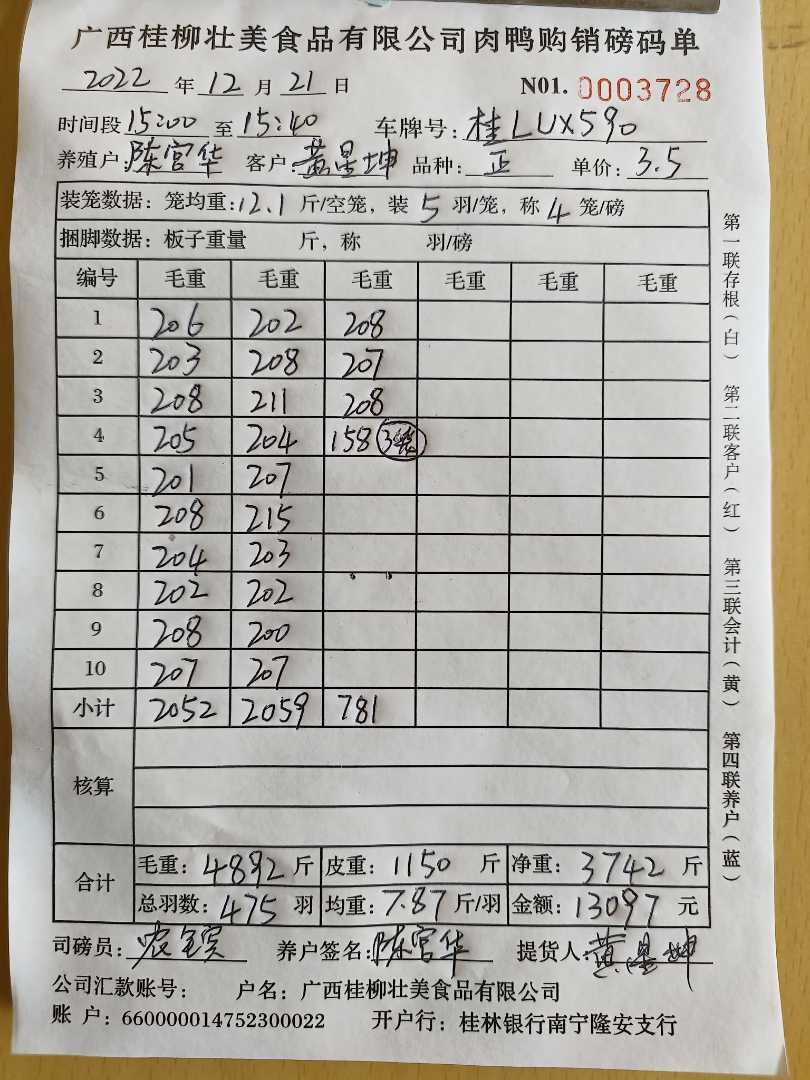 广西桂柳壮美食品有限公司肉鸭购销磅码单
2022 年 12 月 21 日 N01. 0003728
时间段 15:00 至 15:40 车牌号: 桂LUX590
养殖户: 陈宫华 客户: 黄星坤 品种: 正 单价: 3.5
装笼数据: 笼均重: 12.1 斤/空笼, 装 5 羽/笼, 称 4 笼/磅
捆脚数据: 板子重量 斤, 称 羽/磅
编号 毛重 毛重 毛重 毛重 毛重 毛重
1 206 202 208
2 203 208 207
3 208 211 208
4 205 204 158 3笼
5 201 207
6 208 215
7 204 203
8 202 202
9 208 200
10 207 207
小计 2052 2059 781
核算
合计 毛重: 4892 斤 皮重: 1150 斤 净重: 3742 斤
总羽数: 475 羽 均重: 7.87 斤/羽 金额: 13097 元
司磅员: 农 养户签名: 陈宫华 提货人: 黄星坤
公司汇款账号: 户名: 广西桂柳壮美食品有限公司
账 户: 660000014752300022 开户行: 桂林银行南宁隆安支行
第一联存根(白) 第二联客户(红) 第三联会计(黄) 第四联养户(蓝)